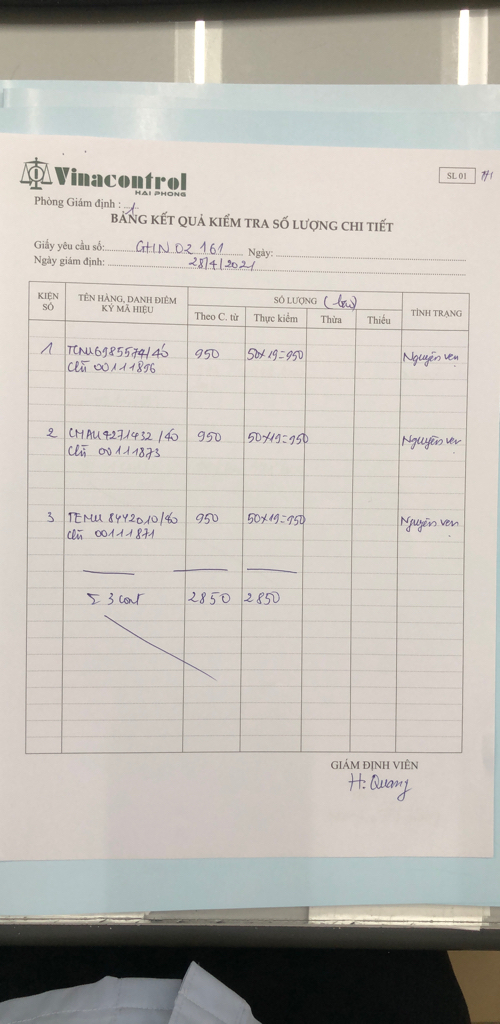 Vinacontrol
HAI PHONG
SL 01
Phòng Giám định : 1
BẢNG KẾT QUẢ KIỂM TRA SỐ LƯỢNG CHI TIẾT
Giấy yêu cầu số: GHIN 02 161 Ngày:
Ngày giám định: 28/4/2021
KIỆN SỐ TÊN HÀNG, DANH ĐIỂM KÝ MÃ HIỆU SỐ LƯỢNG (bao) TÌNH TRẠNG
Theo C. từ Thực kiểm Thừa Thiếu
1 TCNU6985574/40 950 50x19=950 Nguyên vẹn
Chì 00111896
2 CMAU4271432/40 950 50x19=950 Nguyên vẹn
Chì 00111873
3 TEMU 8442010/40 950 50x19=950 Nguyên vẹn
Chì 00111871
Σ 3 cont 2850 2850
GIÁM ĐỊNH VIÊN
H. Quang